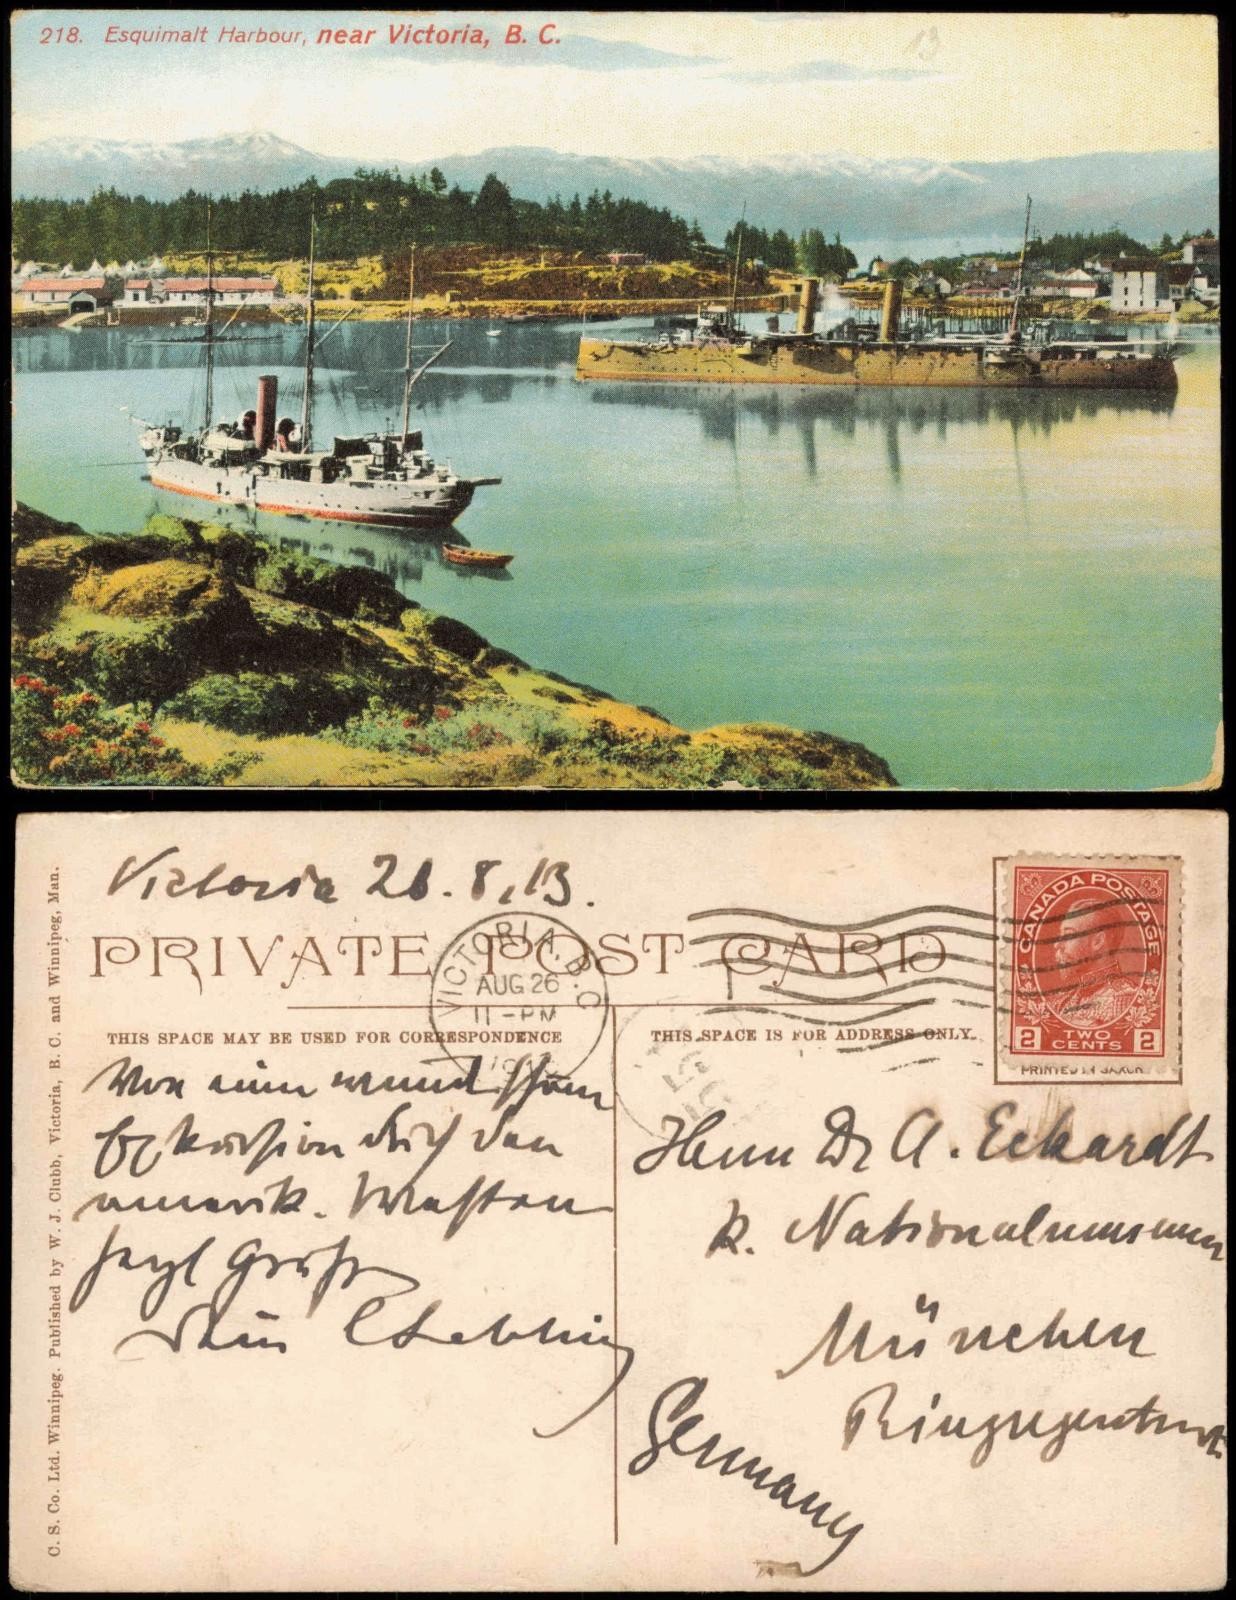 218. Esquimalt Harbour, near Victoria, B. C.
13
Victoria 26. 8. 13.
PRIVATE POST CARD
VICTORIA, B.C.
AUG 26
11-PM
CANADA POSTAGE
2 TWO CENTS 2
PRINTED IN SAXONY
THIS SPACE MAY BE USED FOR CORRESPONDENCE
THIS SPACE IS FOR ADDRESS ONLY.
Von einer wunderschönen
Exkursion durch den
amerik. Westen
herzl Grüße
Dein
Herrn Dr A. Eckardt
k. Nationalmuseum
München
Germany
C. S. Co. Ltd. Winnipeg. Published by W. J. Clubb, Victoria, B. C. and Winnipeg, Man.